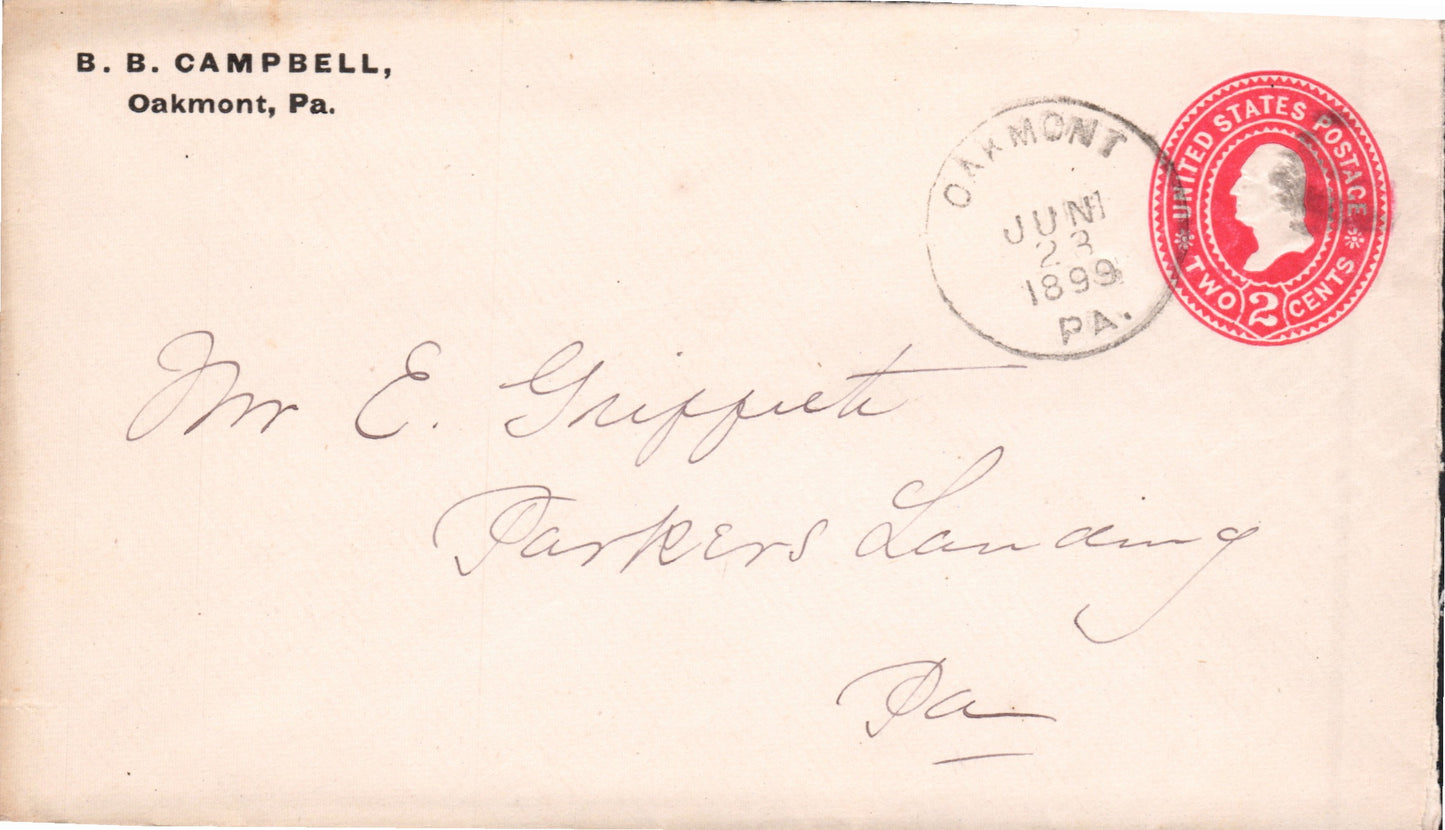 B. B. CAMPBELL,
Oakmont, Pa.
OAKMONT
JUN
23
1899
PA.
UNITED STATES POSTAGE
TWO 2 CENTS
Mr E. Griffith
Parkers Landing
Pa